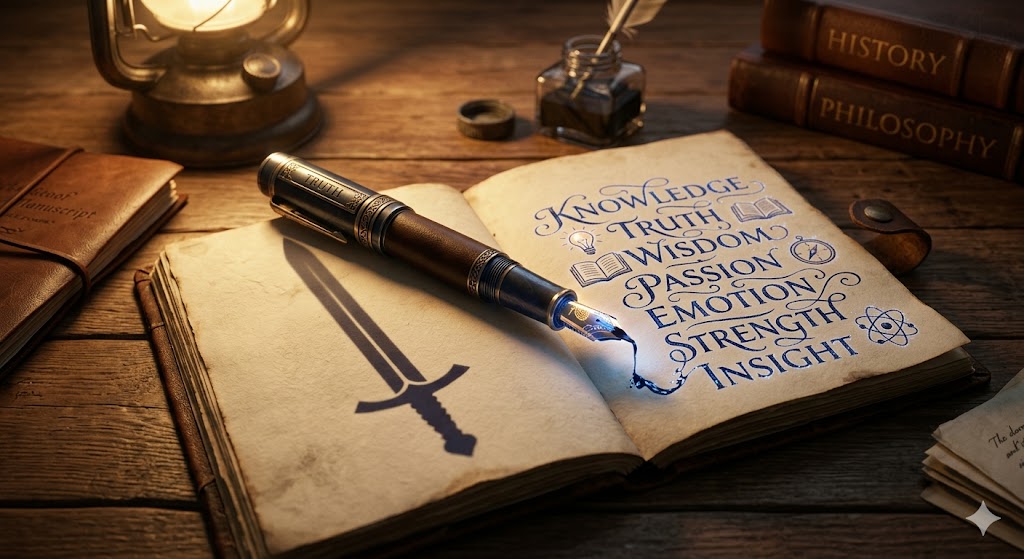 HISTORY
PHILOSOPHY
TRUTH
KNOWLEDGE
TRUTH
WISDOM
PASSION
EMOTION
STRENGTH
INSIGHT
Manuscript
The